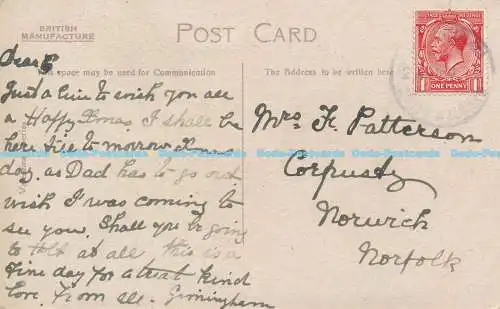 BRITISH
MANUFACTURE
POST CARD
POSTAGE REVENUE
ONE PENNY
This space may be used for Communication
The Address to be written here
Dear
Just a line to wish you all
a Happy Xmas, I shall be
here till to morrow Xmas
day, as Dad has to go out
wish I was coming to
see you. Shall you be going
to Holt at all this is a
fine day for a treat kind
love from all. Gimingham
Mrs F. Patterson
Corpusty
Norwich
Norfolk